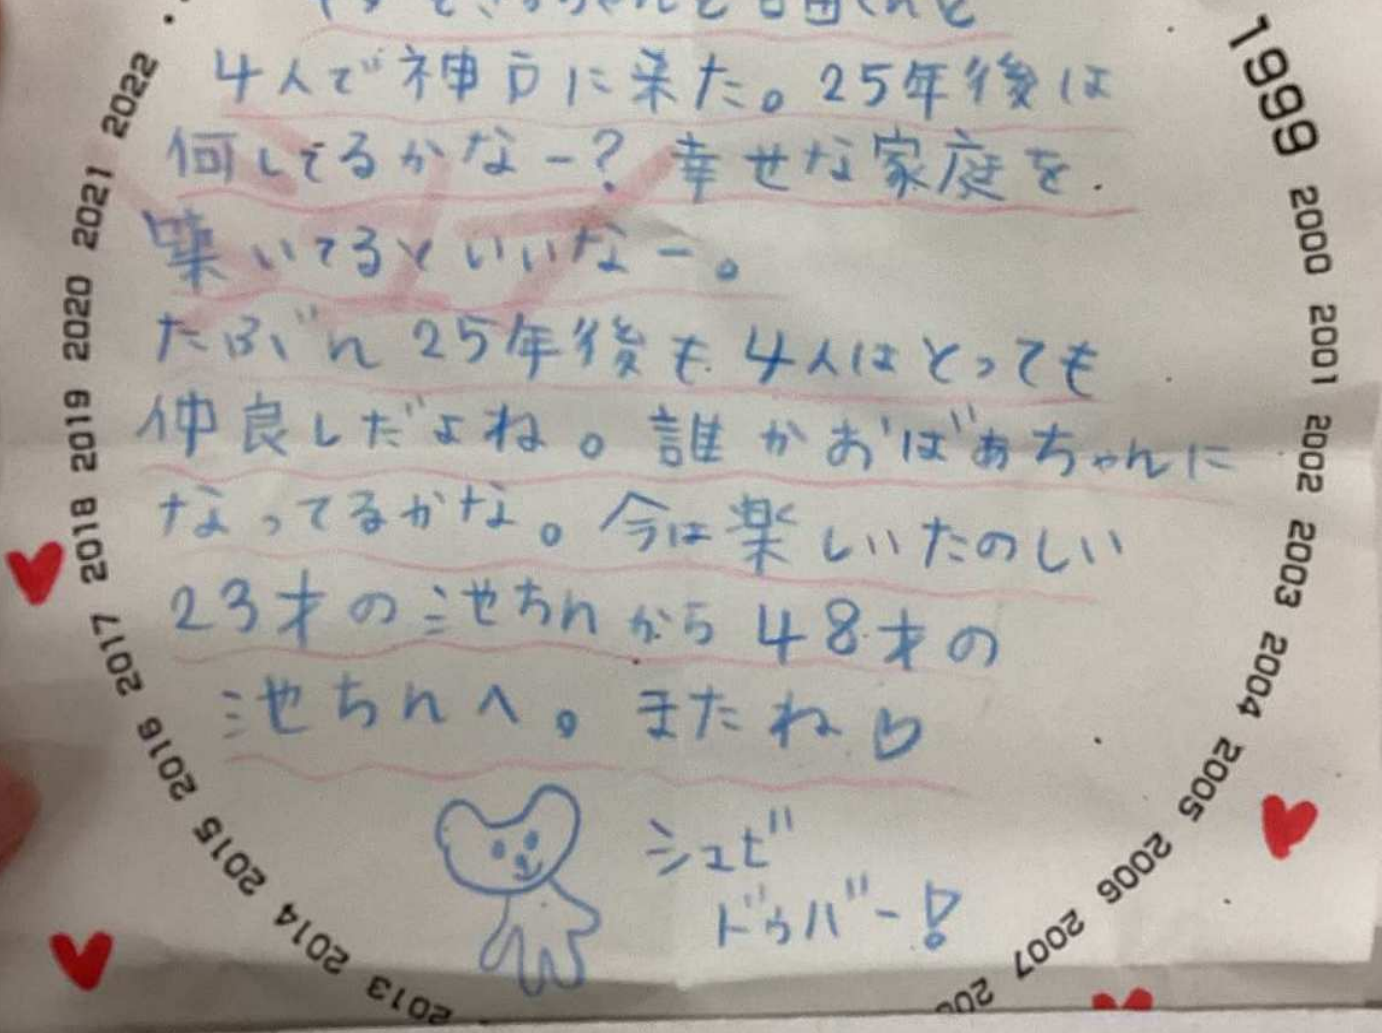 4人で神戸に来た。25年後は
何してるかなー？幸せな家庭を
築いてるといいなー。
たぶん25年後も4人はとっても
仲良しだよね。誰かおばあちゃんに
なってるかな。今は楽しいたのしい
23才の池ちんから48才の
池ちんへ。またね♡
シュビ
ドゥバー!
1999 2000 2001 2002 2003 2004 2005 2006 2007
2013 2014 2015 2016 2017 2018 2019 2020 2021 2022